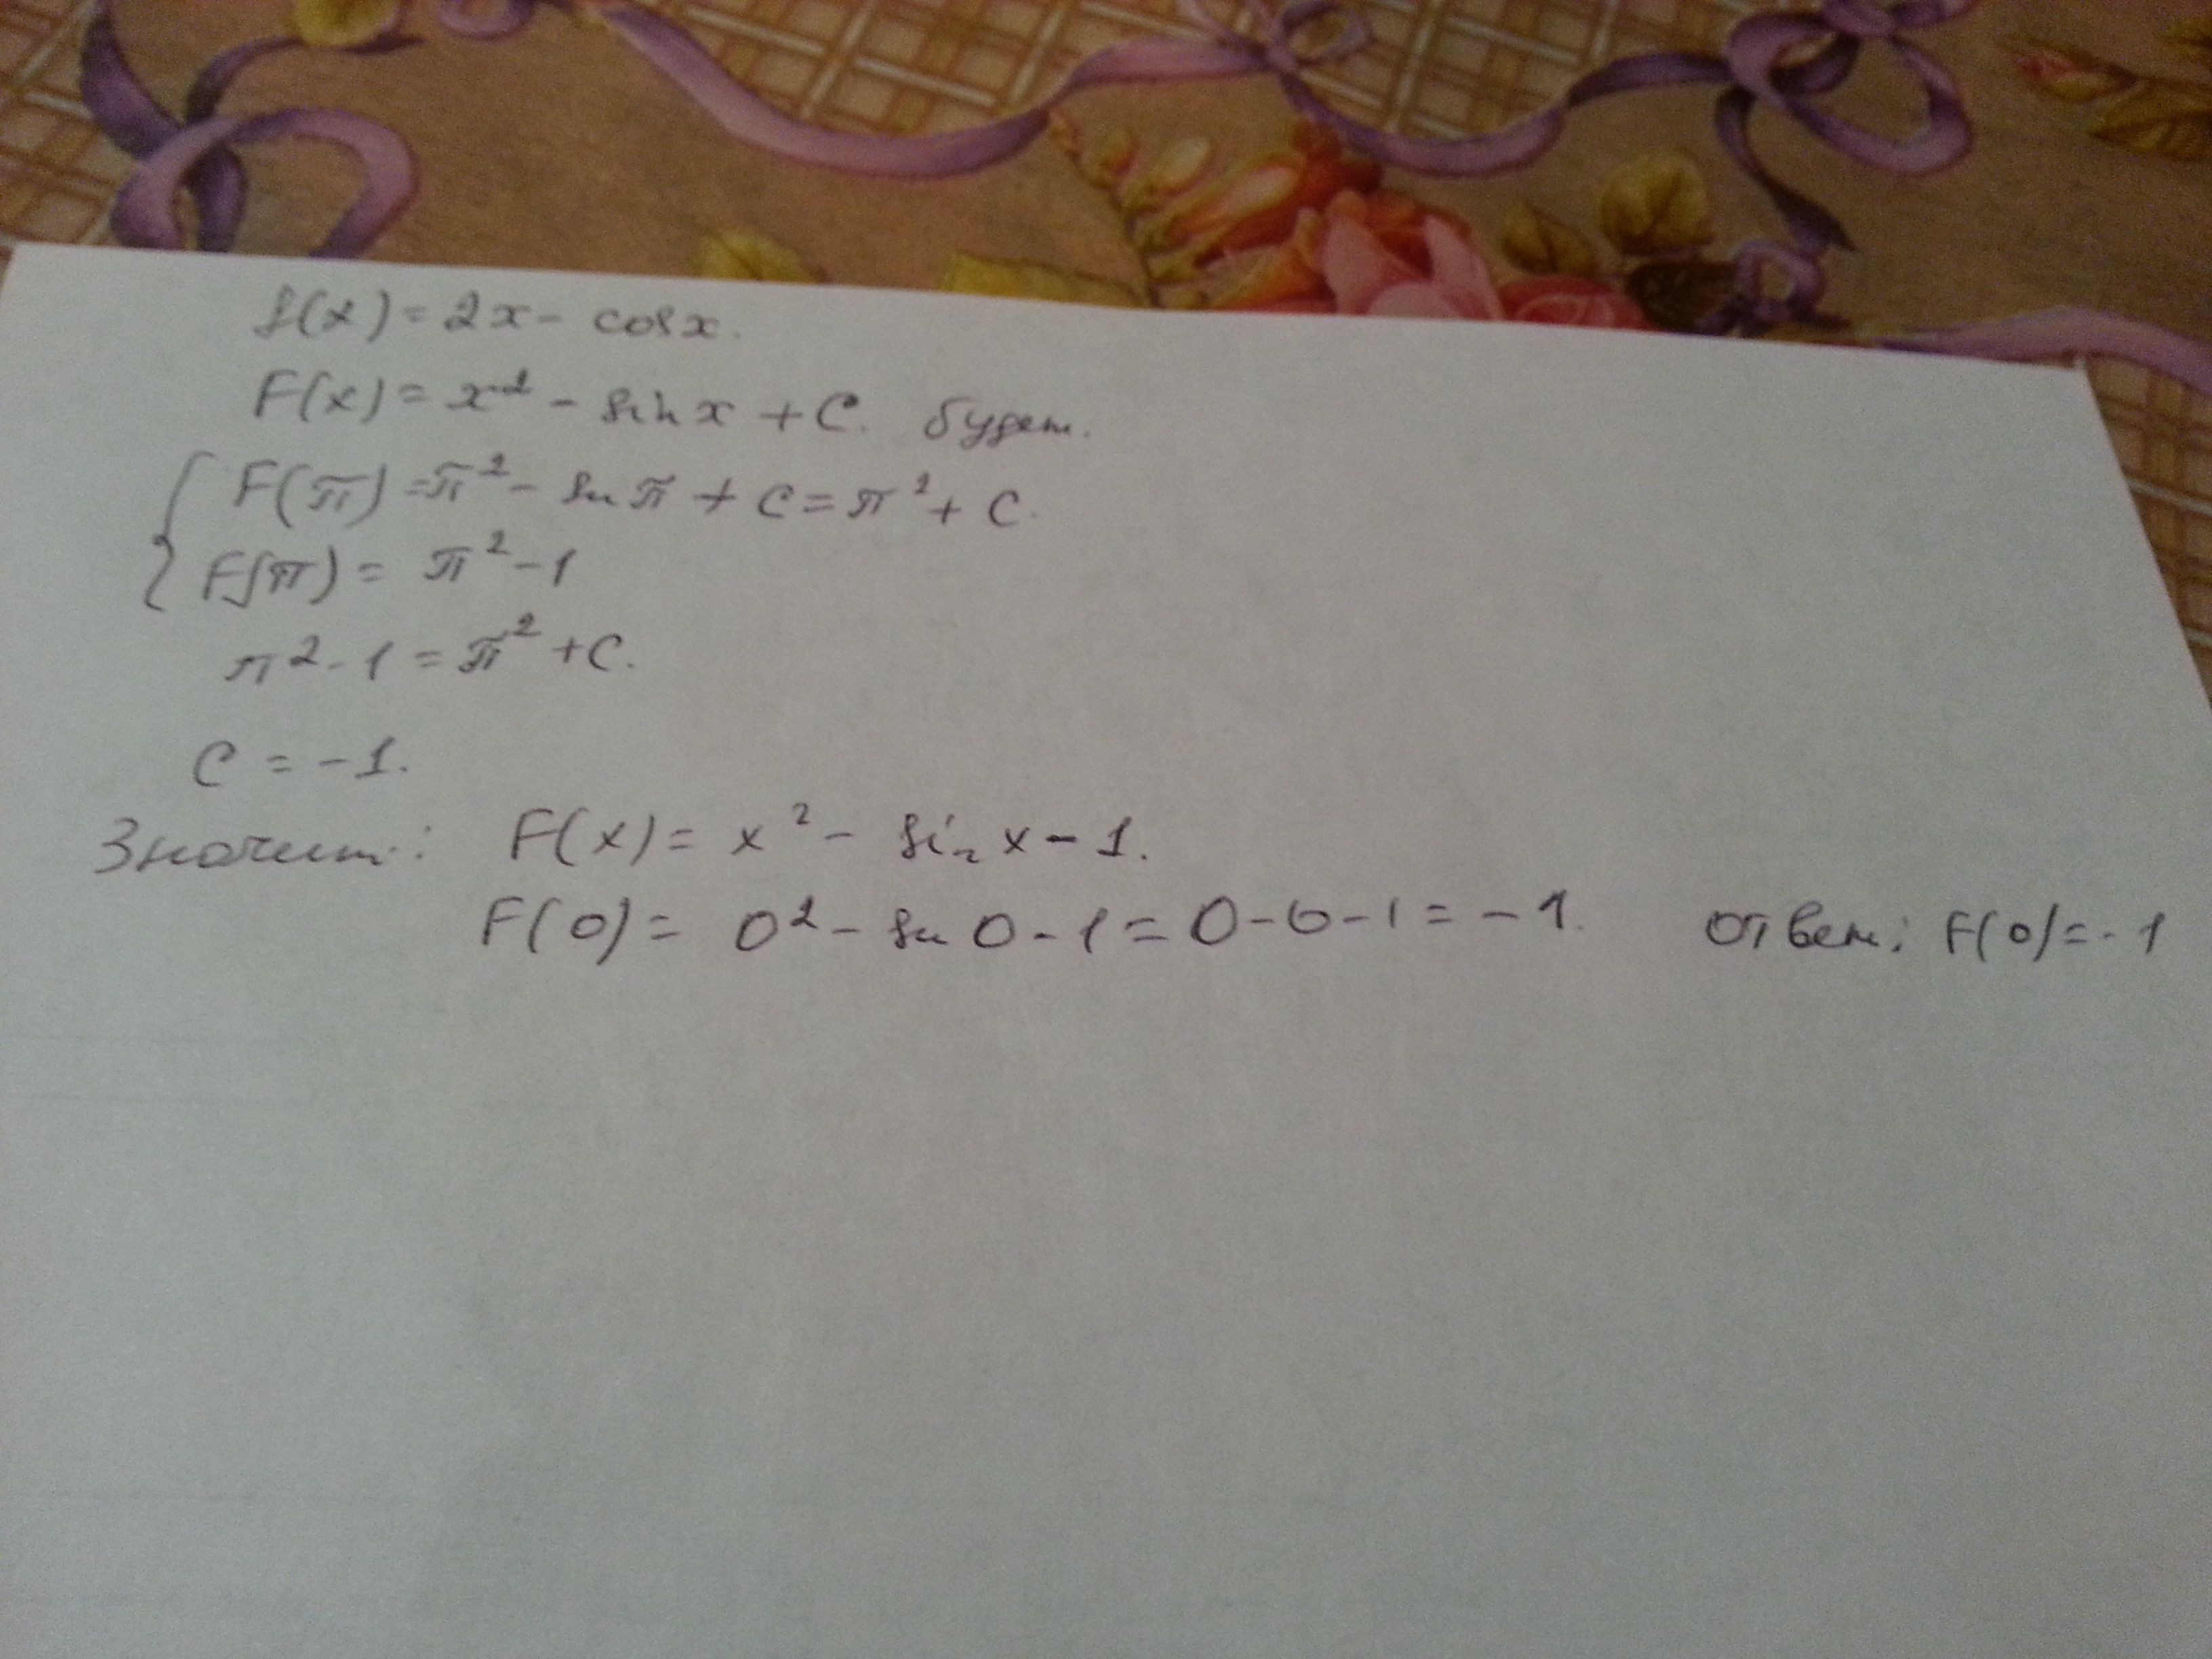 f(x) = 2x - cos x.
F(x) = x² - sin x + C. будет.
F(π) = π² - sin π + C = π² + C.
F(π) = π² - 1
π² - 1 = π² + C.
C = -1.
Значит: F(x) = x² - sin x - 1.
F(0) = 0² - sin 0 - 1 = 0 - 0 - 1 = -1. Ответ: F(0) = -1